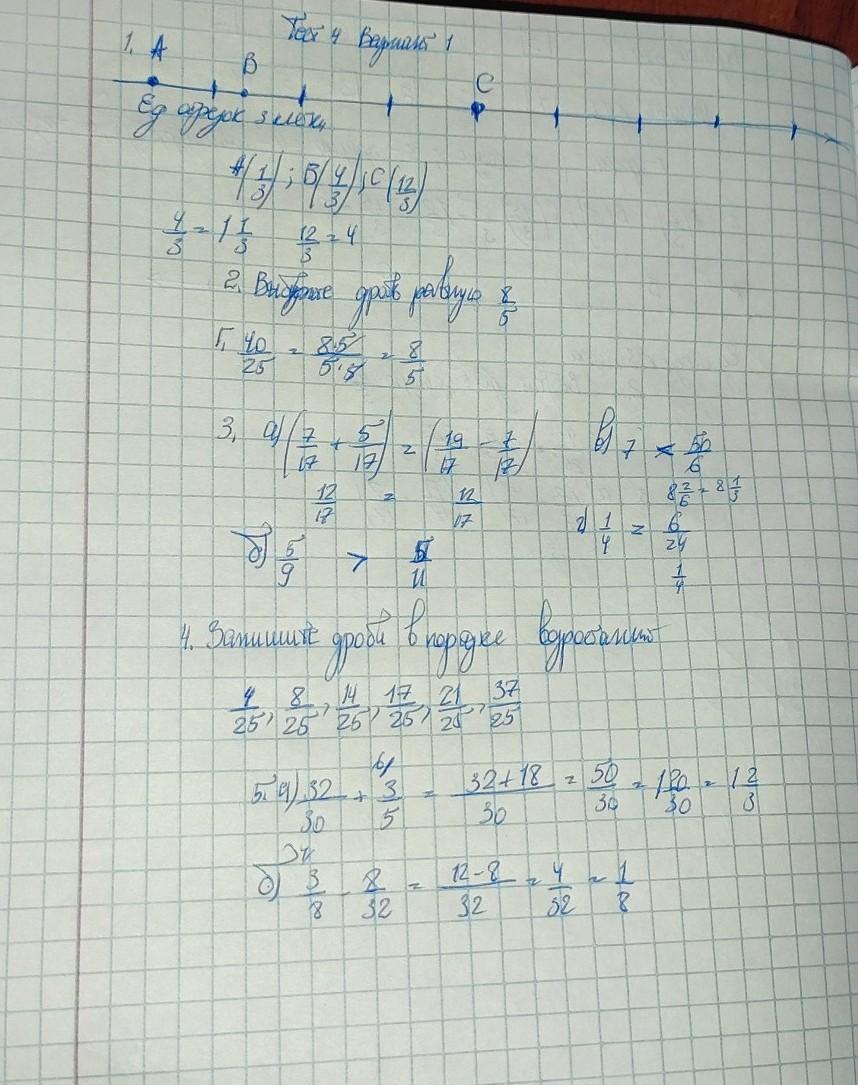 Тест 4 Вариант 1
1. A B C
Ед отрезок 3 клетк,
A(1/3); B(4/3); C(12/3)
4/3 = 1 1/3 12/3 = 4
2. дробь равную 8/5
Г. 40/25 = 8·5/5·5 = 8/5
3. а) (7/17 + 5/17) = (19/17 - 7/17) в) 7 < 50/6
12/17 = 12/17 8 2/6 = 8 1/3
б) 5/9 > 5/11 г) 1/4 = 6/24
1/4
4. Запишите дроби в порядке
4/25, 8/25, 14/25, 17/25, 21/25, 37/25
5. а) 32/30 + 6/ 3/5 = 32+18/30 = 50/30 = 1 20/30 = 1 2/3
б) 4 3/8 - 8/32 = 12-8/32 = 4/32 = 1/8